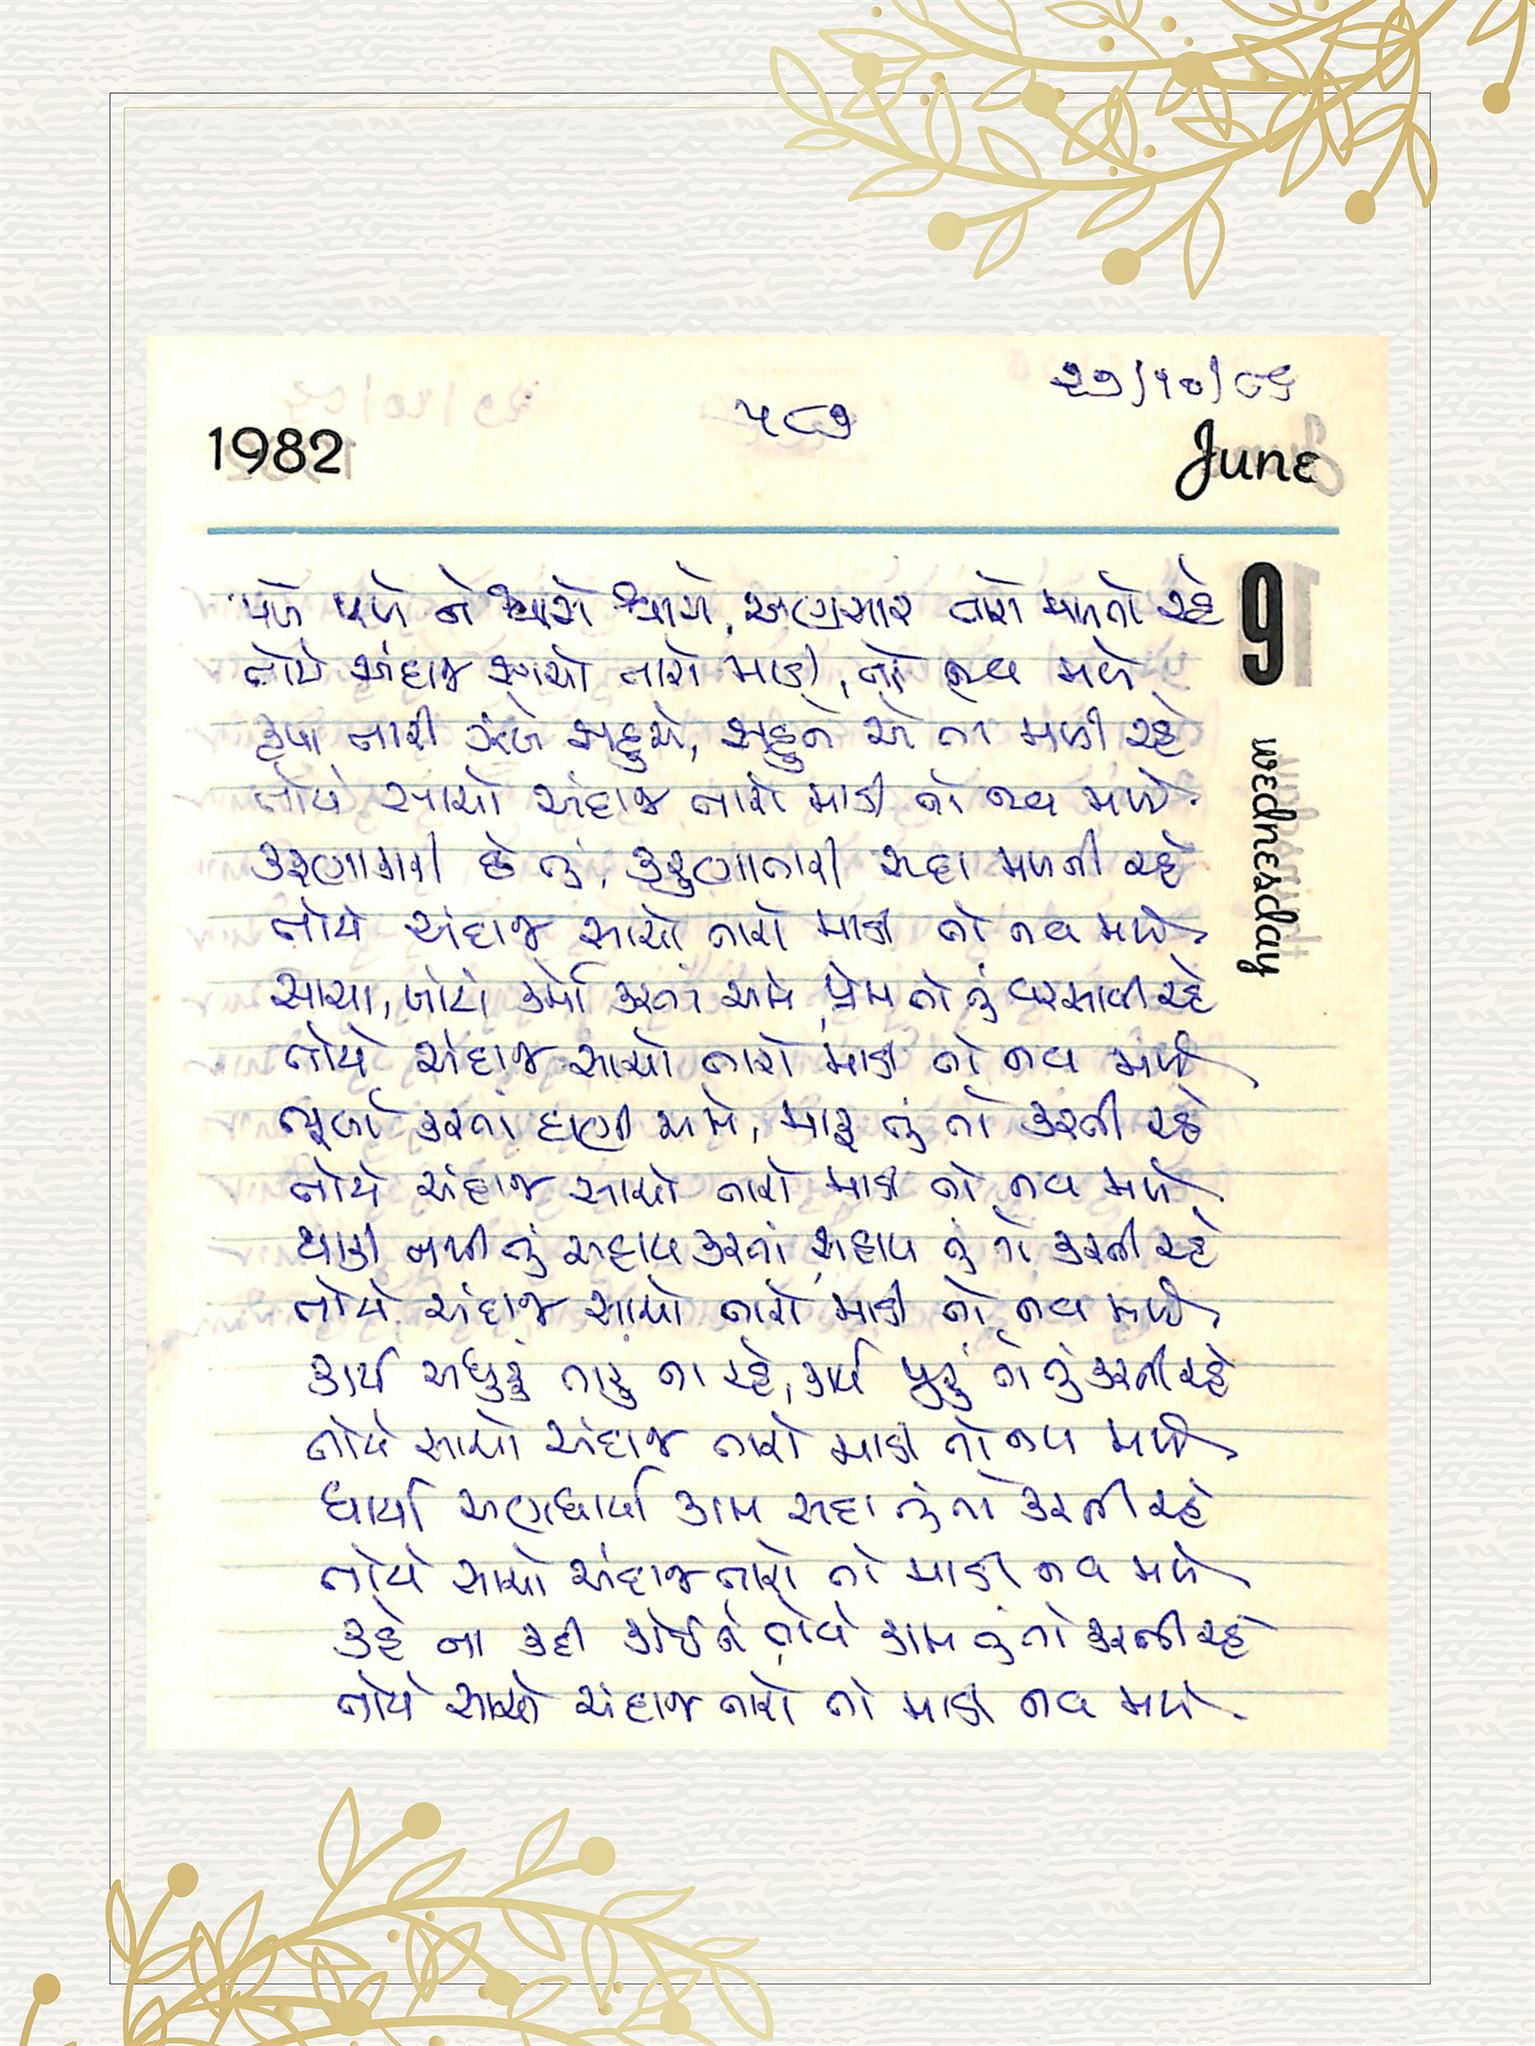 ૨૭/૧૦/૮૬
૫૮૭
1982
June
પળે પળે ને શ્વાસે શ્વાસે, અણસાર તારો મળતો રહે
તોયે અંદાજ સાચો તારો માડી, તો નવ મળે
કૃપા તારી ઝંખે સહુએ, સહુને એ તો મળી રહે
તોયે સાચો અંદાજ તારો માડી તો નવ મળે
કરુણાકારી છે તું, કરુણા તારી સદા મળતી રહે
તોયે અંદાજ સાચો તારો માડી તો નવ મળે
સાચા, ખોટા કર્મો કરતાં અમે, પ્રેમ તો તું વરસાવી રહે
તોયે અંદાજ સાચો તારો માડી તો નવ મળે
ભૂલો કરતાં ઘણી અમે, માફ તું તો કરતી રહે
તોયે અંદાજ સાચો તારો માડી તો નવ મળે
થાકી નથી તું સહાય કરતાં, સહાય તું તો કરતી રહે
તોયે અંદાજ સાચો તારો માડી તો નવ મળે
કાર્ય અધુરું તારું ના રહે, કાર્ય પુરું તો તું કરતી રહે
તોયે સાચો અંદાજ તારો માડી તો નવ મળે
ધાર્યા અણધાર્યા કામ સદા તું તો કરતી રહે
તોયે સાચો અંદાજ તારો તો માડી નવ મળે
કહે ના કદી કોઈને તોયે કામ તું તો કરતી રહે
તોયે સાચો અંદાજ તારો તો માડી નવ મળે
9
wednesday